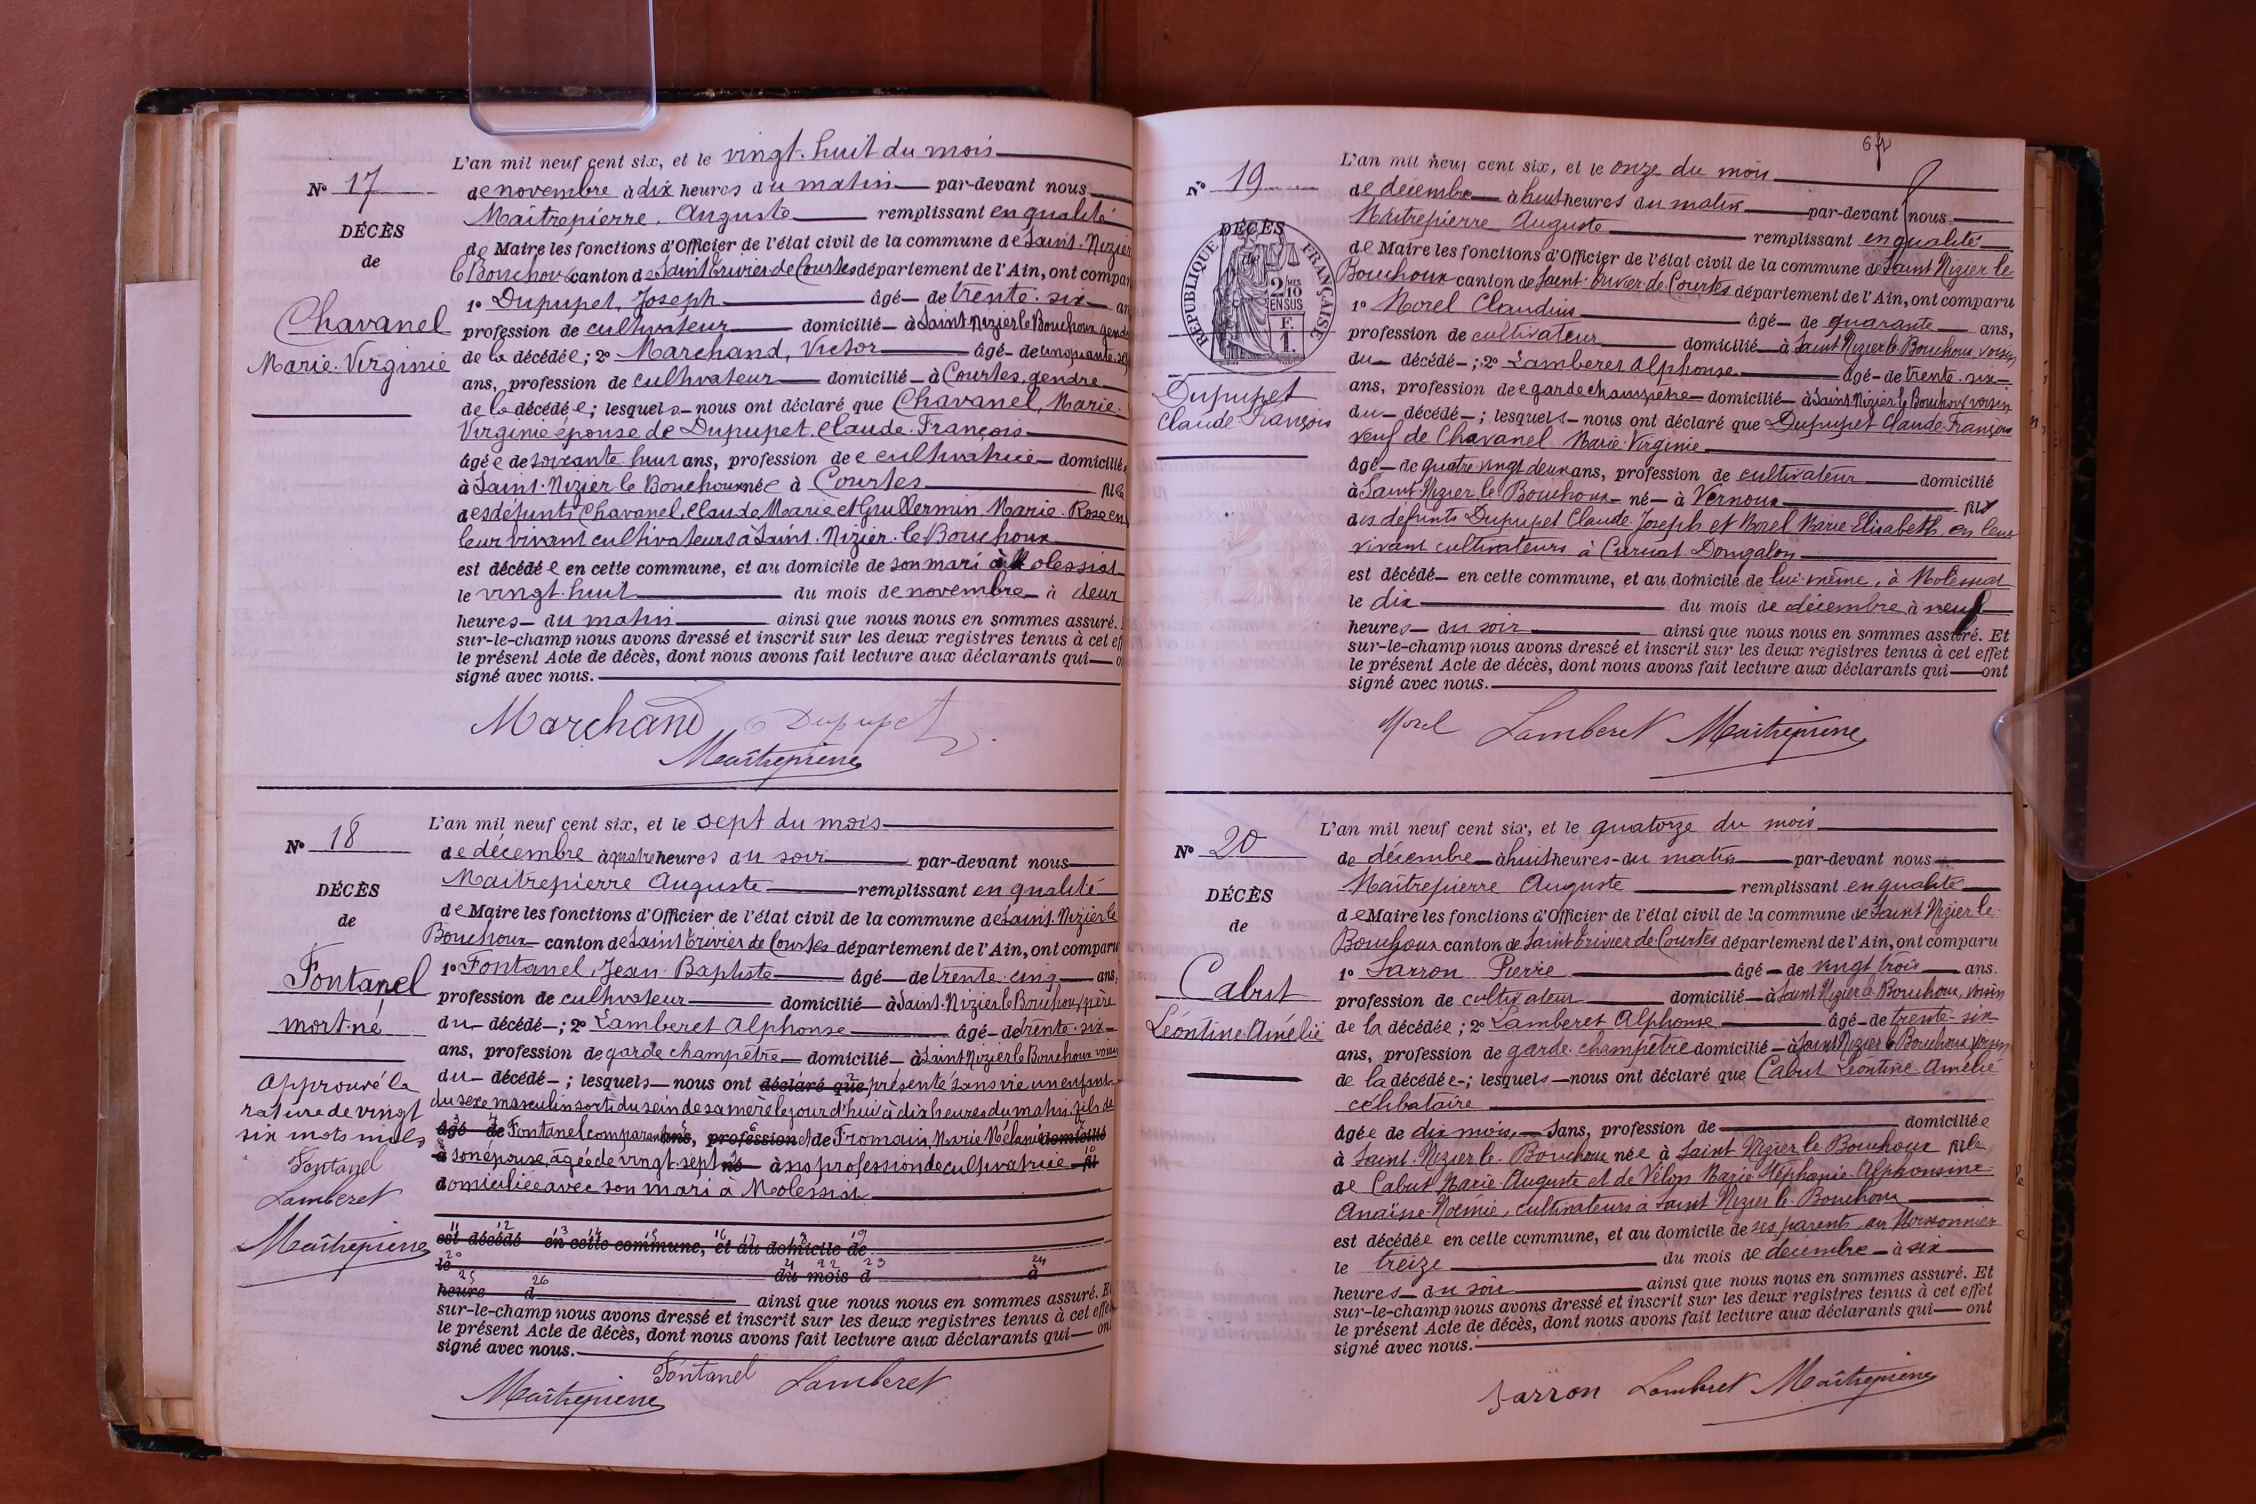 L'an mil neuf cent six, et le vingt-huit du mois
N° 17
de novembre à dix heures du matin par-devant nous
Maîtrepierre, Auguste remplissant en qualité
DÉCÈS
de Maire les fonctions d'Officier de l'état civil de la commune de Saint-Nizier
de
le Bouchoux canton de Saint Trivier de Courtes département de l'Ain, ont compar
1° Dupupet, Joseph âgé de trente-six an
Chavanel
profession de cultivateur domicilié à Saint-Nizier le Bouchoux gendr
Marie-Virginie
de la décédée; 2° Marchand, Victor âgé de cinquante
ans, profession de cultivateur domicilié à Courtes, gendre
de la décédée; lesquels nous ont déclaré que Chavanel, Marie
Virginie épouse de Dupupet, Claude-François
âgée de soixante huit ans, profession de cultivatrice domiciliée
à Saint-Nizier le Bouchoux née à Courtes fille
des défunts Chavanel, Claude Marie et Guillermin, Marie-Rose en
leur vivant cultivateurs à Saint-Nizier-le Bouchoux
est décédée en cette commune, et au domicile de son mari à Molessiat
le vingt-huit du mois de novembre à deux
heures du matin ainsi que nous nous en sommes assuré.
sur-le-champ nous avons dressé et inscrit sur les deux registres tenus à cet eff
le présent Acte de décès, dont nous avons fait lecture aux déclarants qui o
signé avec nous.
Marchand Dupupet
Maîtrepierre
L'an mil neuf cent six, et le sept du mois
N° 18
de décembre à quatre heures du soir par-devant nous
Maîtrepierre Auguste remplissant en qualité
DÉCÈS
de Maire les fonctions d'Officier de l'état civil de la commune de Saint-Nizier le
de
Bouchoux canton de Saint Trivier de Courtes département de l'Ain, ont comparu
Fontanel
1° Fontanel, Jean-Baptiste âgé de trente-cinq ans,
profession de cultivateur domicilié à Saint-Nizier le Bouchoux, père
mort-né
du décédé; 2° Lamberet Alphonse âgé de trente-six
ans, profession de garde champêtre domicilié à Saint Nizier le Bouchoux voisin
du décédé; lesquels nous ont déclaré que présenté sans vie un enfant
du sexe masculin sorti du sein de sa mère le jour d'hui à dix heures du matin, fils de
âgé de Fontanel comparant ans, profession et de Fromain, Marie Mélanie domicilié
à son épouse, âgée de vingt-sept né à ans profession de cultivatrice fil
domiciliée avec son mari à Molessiat
est décédé en cette commune, et au domicile de
le du mois d à
heure d ainsi que nous nous en sommes assuré. E
sur-le-champ nous avons dressé et inscrit sur les deux registres tenus à cet effet
le présent Acte de décès, dont nous avons fait lecture aux déclarants qui ont
signé avec nous.
Approuvé la
rature de vingt
six mots nuls
Fontanel
Lamberet
Maîtrepierre
Fontanel Lamberet
Maîtrepierre
6
L'an mil neuf cent six, et le onze du mois
N° 19
de décembre à huit heures du matin par-devant nous
Maîtrepierre Auguste remplissant en qualité
DÉCÈS
de
RÉPUBLIQUE FRANÇAISE
2/10 EN SUS
F. 1.
de Maire les fonctions d'Officier de l'état civil de la commune de Saint Nizier le
Bouchoux canton de Saint-Trivier de Courtes département de l'Ain, ont comparu
1° Morel Claudius âgé de quarante ans,
profession de cultivateur domicilié à Saint Nizier le Bouchoux, voisin
du décédé; 2° Lamberet Alphonse âgé de trente-six
Dupupet
Claude François
ans, profession de garde champêtre domicilié à Saint-Nizier le Bouchoux voisin
du décédé; lesquels nous ont déclaré que Dupupet Claude François
veuf de Chavanel Marie-Virginie
âgé de quatre vingt deux ans, profession de cultivateur domicilié
à Saint-Nizier le Bouchoux né à Vernoux fils
des défunts Dupupet Claude-Joseph et Morel Marie Elisabeth en leur
vivant cultivateurs à Curciat Dongalon
est décédé en cette commune, et au domicile de lui-même, à Molessiat
le dix du mois de décembre à neuf
heures du soir ainsi que nous nous en sommes assuré. Et
sur-le-champ nous avons dressé et inscrit sur les deux registres tenus à cet effet
le présent Acte de décès, dont nous avons fait lecture aux déclarants qui ont
signé avec nous.
Morel Lamberet Maîtrepierre
L'an mil neuf cent six, et le quatorze du mois
N° 20
de décembre à huit heures du matin par-devant nous
Maîtrepierre Auguste remplissant en qualité
DÉCÈS
de Maire les fonctions d'Officier de l'état civil de la commune de Saint Nizier le
de
Bouchoux canton de Saint Trivier de Courtes département de l'Ain, ont comparu
1° Sarron Pierre âgé de vingt trois ans.
Cabut
profession de cultivateur domicilié à Saint Nizier le Bouchoux, voisin
Léontine Amélie
de la décédée; 2° Lamberet Alphonse âgé de trente-six
ans, profession de garde-champêtre domicilié à Saint Nizier le Bouchoux, voisin
de la décédée; lesquels nous ont déclaré que Cabut Léontine Amélie
célibataire
âgée de dix mois ans, profession de domiciliée
à Saint-Nizier le-Bouchoux née à Saint Nizier le Bouchoux fille
de Cabut Marie-Auguste et de Vélon Marie-Stéphanie-Alphonsine
Anaïse-Noémie, cultivateurs à Saint Nizier le Bouchoux
est décédée en cette commune, et au domicile de ses parents, au
le treize du mois de décembre à six
heures du soir ainsi que nous nous en sommes assuré. Et
sur-le-champ nous avons dressé et inscrit sur les deux registres tenus à cet effet
le présent Acte de décès, dont nous avons fait lecture aux déclarants qui ont
signé avec nous.
Sarron Lamberet Maîtrepierre